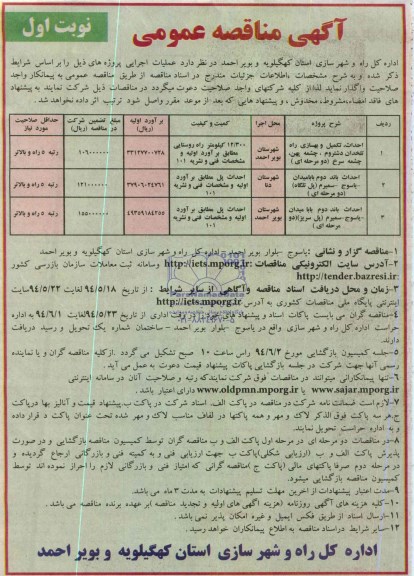 آگهی مناقصه عمومی
نوبت اول
اداره کل راه و شهر سازی استان کهگیلویه و بویر احمد در نظر دارد عملیات اجرایی پروژه های ذیل را بر اساس شرایط
ذکر شده و به شرح مشخصات ،اطلاعات جزئیات مندرج در اسناد مناقصه از طریق مناقصه عمومی به پیمانکار واجد
صلاحیت واگذار نماید. لذا از کلیه شرکتهای واجد صلاحیت دعوت میگردد در مناقصات ذیل شرکت نمایند به پیشنهاد
های فاقد امضاء،مشروط ، مخدوش ، و پیشنهاد هایی که بعد از موعد مقرر واصل شود ترتیب اثر داده نخواهد شد.
ردیف شرح پروژه محل اجرا کمیت و کیفیت بر آورد اولیه (ریال) مبلغ تضمین شرکت در مناقصه (ریال) حداقل صلاحیت مورد نیاز
۱ احداث، تکمیل و بهسازی راه شهرستان بویر احمد ۱۲/۳۰۰ کیلومتر راه روستایی مطابق بر آورد اولیه و مشخصات فنی و نشریه ۱۰۱ رتبه ۵ راه و بالاتر
۲ احداث باند دوم شهرستان دنا احداث پل مطابق بر آورد اولیه و مشخصات فنی و نشریه ۱۰۱ رتبه ۵ راه و بالاتر
۳ احداث باند دوم شهرستان بویر احمد احداث پل مطابق بر آورد اولیه و مشخصات فنی و نشریه ۱۰۱ رتبه ۵ راه و بالاتر
۱-مناقصه گزار و نشانی : یاسوج -بلوار بویر احمد - اداره کل راه و شهر سازی استان کهگیلویه و بویر احمد
۲-آدرس سایت الکترونیکی مناقصات: http://iets.mporg.ir وسامانه ثبت معاملات سازمان بازرسی کشور
http://tender.bazresi.ir
۳-زمان و محل دریافت اسناد مناقصه وآگاهی از سایر شرایط : از تاریخ ۹۴/۵/۱۸ لغایت ۹۴/۵/۲۲ سایت
اینترنتی پایگاه ملی مناقصات کشوری به آدرس http://iets.mporg.ir
۴-مناقصه گران می بایست پاکات اسناد و پیشنهاد از تاریخ لغایت ۹۴/۶/۱ به اداره
حراست اداره کل راه و شهر سازی واقع در یاسوج بلوار بویر احمد - ساختمان شماره یک تحویل و رسید دریافت
دارند.
۵-جلسه کمیسیون بازگشایی مورخ ۹۴/۶/۲ راس ساعت ۱۰ صبح تشکیل می گردد .ازکلیه مناقصه گران و یا نماینده
رسمی آنها جهت شرکت در جلسه بازگشایی پاکات پیشنهاد قیمت دعوت به عمل می آید .
۶-تنها پیمانکارانی میتوانند در مناقصات فوق شرکت نمایند که رتبه و صلاحیت آنان در سامانه اینترنتی
www.sajar.mporg.ir یا www.oldpmn.mporg.ir دارای اعتبار باشد .
۷-لازم است ضمانت نامه شرکت در مناقصه در پاکت الف، اسناد شرکت در پاکت ب،پیشنهاد قیمت و آنالیز بها درپاکت
ج،هر سه پاکت فوق الذکر لاک و مهر و همه پاکتها در لفاف مناسب لاک و مهر شده تحت عنوان پاکت د قرار داده
و به اداره حراست تحویل نمایند.
۸-در مناقصات دو مرحله ای در مرحله اول پاکت الف و ب مناقصه گران توسط کمیسیون مناقصه بازگشایی و در صورت
پذیرش پاکت الف و ب (ارزیابی شکلی)پاکت ب جهت ارزیابی فنی و به کمیته فنی و بازرگانی ارجاع گردیده و
در مرحله دوم صرفا پاکتهای مالی (پاکت ج )مناقصه گرانی که امتیاز فنی و بازرگانی لازم را احراز نموده اند توسط
کمیسیون مناقصه بازگشایی میشود.
۹-مدت اعتبار پیشنهادات از آخرین مهلت تسلیم پیشنهادات به مدت ۳ ماه می باشد.
۱۰-کلیه هزینه های آگهی روزنامه (هزینه آگهی های اولیه و تجدید مناقصه )بر عهده برنده مناقصه می باشد .
۱۱-ارسال اسناد از طریق فکس ایمیل و غیره امکان پذیر نمی باشد .
۱۲-سایر شرایط دراسناد مناقصه به اطلاع پیمانکاران خواهد رسید .
اداره کل راه و شهر سازی استان کهگیلویه و بویر احمد